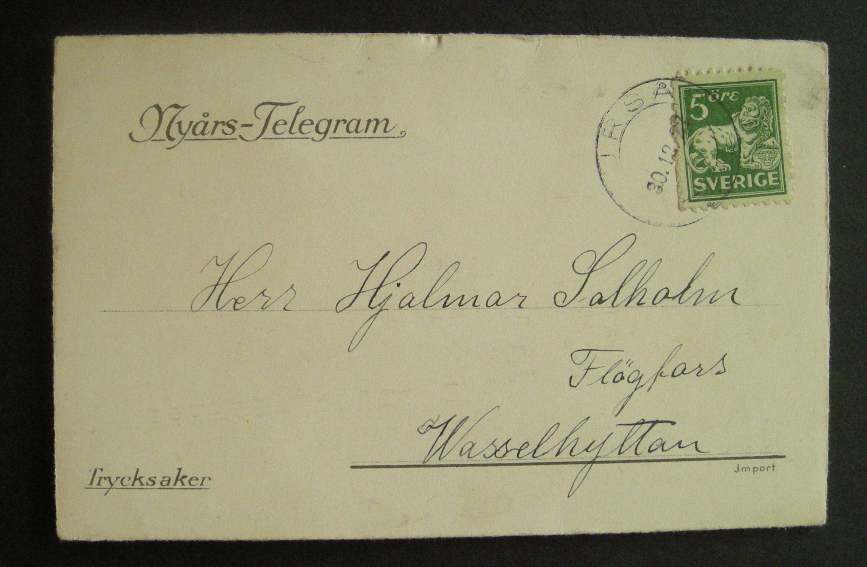 Nyårs-Telegram.
IRSA
30.12.
5 ÖRE
SVERIGE
Herr Hjalmar Solholm
Flögfors
Wasselhyttan
Import
Trycksaker